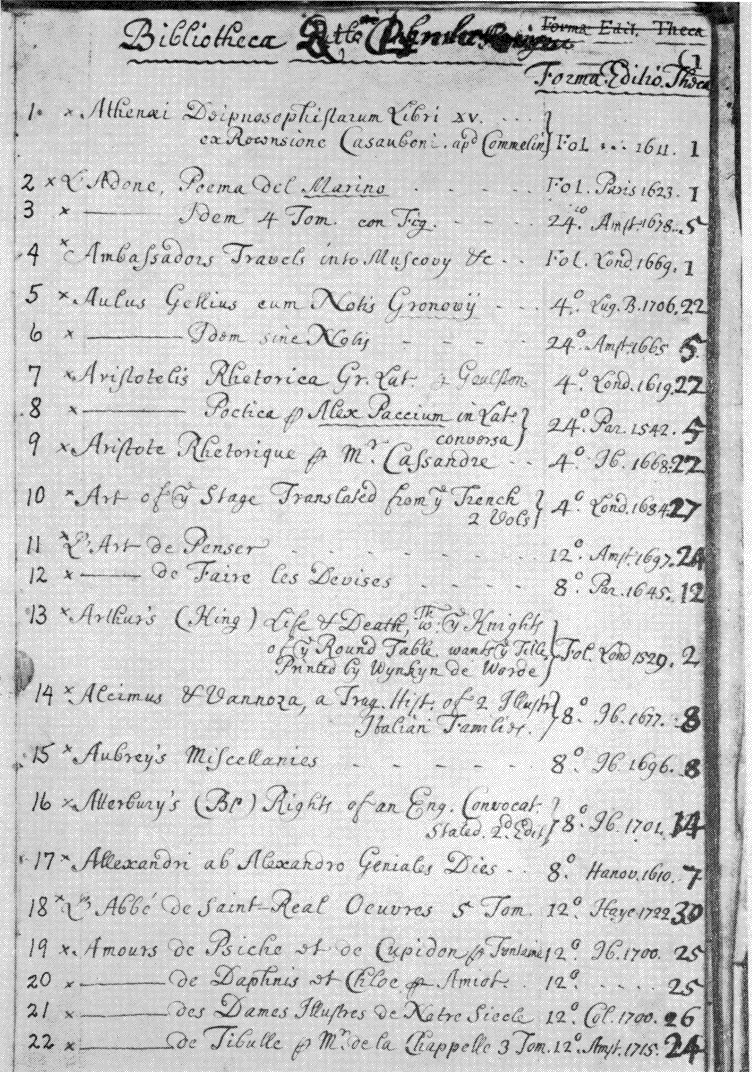 Bibliotheca
Forma Edit. Theca
Forma. Editio. Theca
1 x Athenæi Deipnosophistarum Libri XV. . . .
ex Recensione Casauboni. apd Commelin} Fol . . . 1611. 1
2 x L'Adone, Poema del Marino - - - - Fol. Paris 1623. 1
3 x ——— Idem 4 Tom. con Fig. - - - 24.to Amst. 1678. 5
4 x Ambassadors Travels into Muscovy &c - - Fol. Lond. 1669. 1
5 x Aulus Gellius cum Notis Gronovij - - - 4.o Lug. B. 1706. 22
6 x ——— Idem sine Notis - - - - 24.o Amst. 1665 5
7 x Aristotelis Rhetorica Gr. Lat. p Goulston. 4.o Lond. 1619. 22
8 x ——— Poetica p Alex Paccium in Lat.
conversa} 24.o Par. 1542. 5
9 x Aristote Rhetorique p Mr. Cassandre - - 4.o Ib. 1668. 22
10 x Art of ye Stage Translated from ye French
2 Vols} 4.o Lond. 1684. 27
11 x L'Art de Penser . . . . . . 12.o Amst. 1697. 24
12 x ——— de Faire les Devises - - - - 8.o Par. 1645. 12
13 x Arthur's (King) Life & Death, wth. ye Knights
of ye Round Table wants ye Title
Printed by Wynkyn de Worde} Fol. Lond 1529. 2
14 x Alcimus & Vannoza, a Trag. Hist. of 2 Illustr
Italian Families.} 8.o Ib. 1677. 8
15 x Aubrey's Miscellanies - - - - - 8.o Ib. 1696. 8
16 x Atterbury's (Bp) Rights of an Eng. Convocat
Stated. 2.d Edit} 8.o Ib. 1701. 14
17 x Allexandri ab Alexandro Geniales Dies . . 8.o Hanov. 1610. 7
18 x L'Abbé de Saint-Real Oeuvres 5 Tom. 12.o Haye 1722 30
19 x Amours de Psiche et de Cupidon p Funtaine 12.o Ib. 1700. 25
20 x ——— de Daphnis et Chloe p Amiot. . 12.o . . . . . 25
21 x ——— des Dames Illustres de Notre Siecle 12.o Col. 1700. 26
22 x ——— de Tibulle p Mr. de la Chappelle 3 Tom. 12.o Amst. 1715. 24